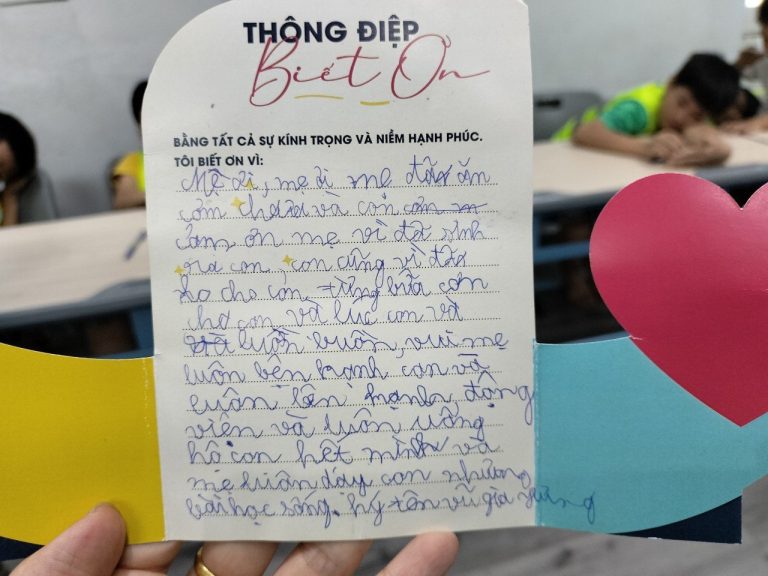 THÔNG ĐIỆP
Biết Ơn
BẰNG TẤT CẢ SỰ KÍNH TRỌNG VÀ NIỀM HẠNH PHÚC.
TÔI BIẾT ƠN VÌ:
Mẹ ơi, mẹ ơi mẹ đã ăn
cơm chưa và con
cảm ơn mẹ vì đã sinh
ra con, con cũng vì đã
lo cho con từng bữa cơm
cho con và lúc con và
luôn buồn, vui mẹ
luôn bên cạnh con và
luôn bên cạnh động
viên và luôn ủng
hộ con hết mình và
mẹ luôn dáy con những
bài học sống. ký tên vũ gia